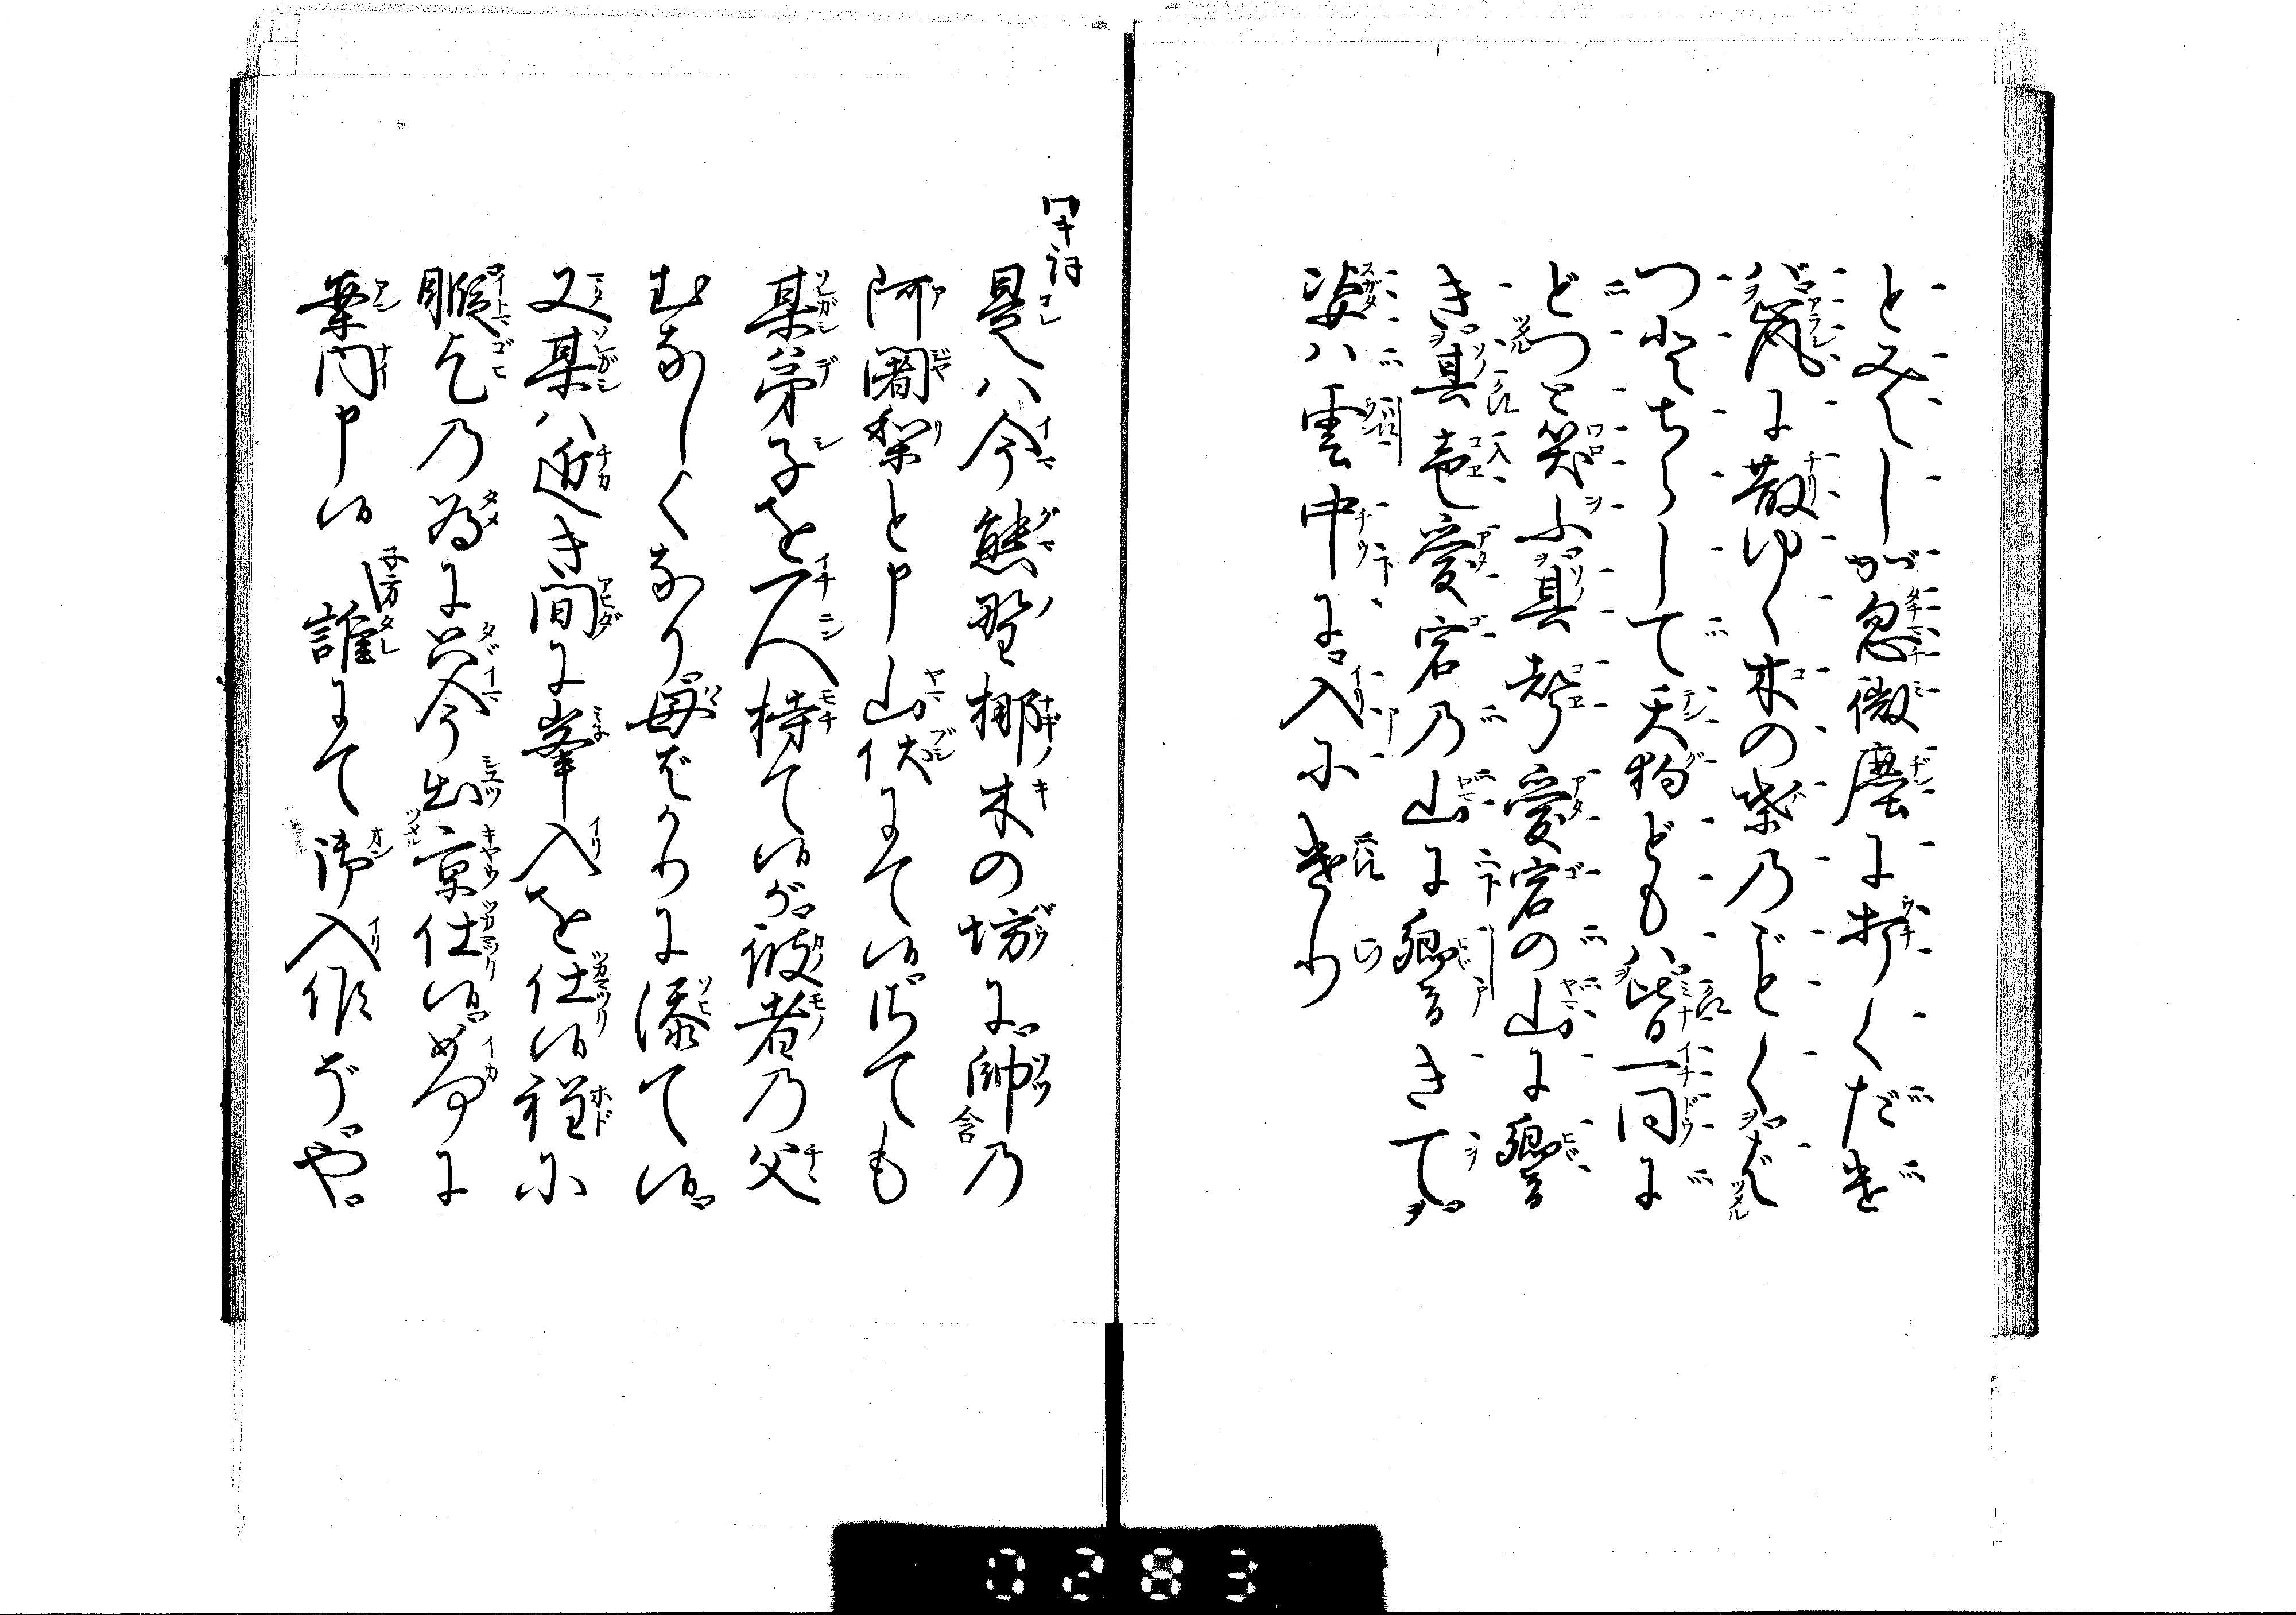 とみえしが忽微塵に打くだき
バ嵐に散ゆく木の葉乃ごとくばつ
つとちらして天狗どもハ皆一同に
どつと笑ふ其声愛宕の山に響
き其声愛宕乃山に響きて
姿ハ雲中に入にけり
ワキ詞
是ハ今熊野梛木の坊に帥乃
阿闍梨と申山伏にて候さても
某弟子を一人持て候が彼者乃父
むなしくなり母ばかりに添て候
又某ハ近き間に峯入を仕候程に
暇乞乃為に只今出京仕候いかに
案内申候
子方
誰にて御入候ぞや
0283